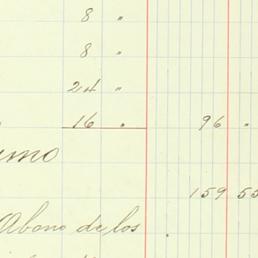 8 "
8 "
24 "
16 " 96 "
159 55
Abono de los